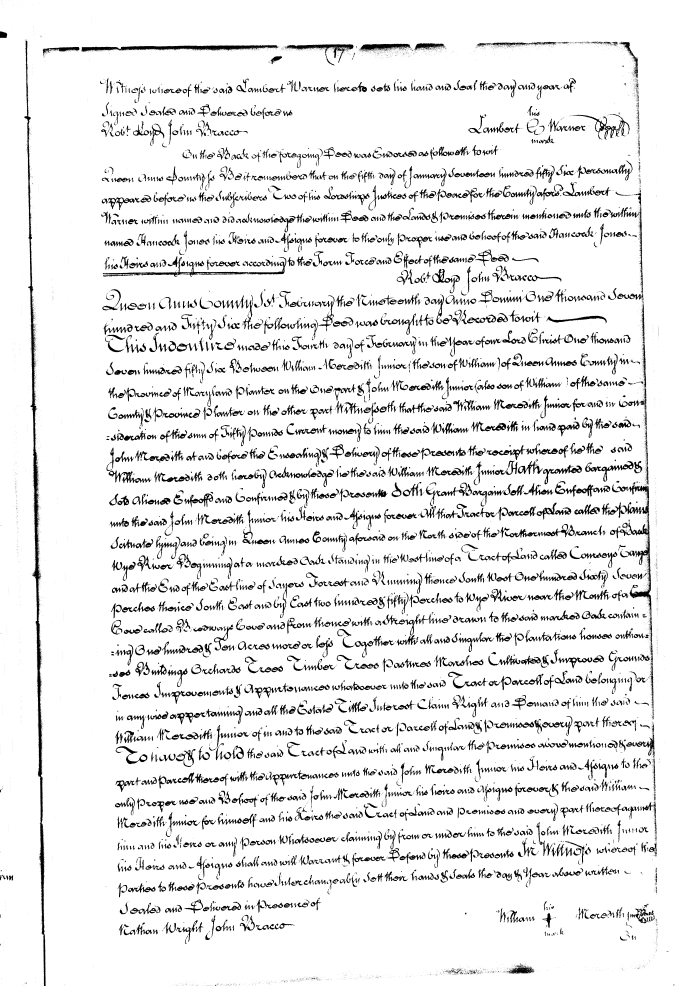 (17)
Witness whereof the said Lambert Warner hereto sets his hand and Seal the day and year afs.
Signed Sealed and Delivered before us
his
Robt. Loyd John Bracco Lambert Warner
mark
On the Back of the foregoing Deed was Endorsed as followeth to wit
Queen Anns County ss Be it remembered that on the fifth day of January Seventeen hundred fifty Six personally
appeared before us the Subscribers Two of his Lordships Justices of the Peace for the County afors. Lambert
Warner within named and did acknowledge the within Deed and the Lands & Premises therein mentioned unto the within
named Hancock Jones his Heirs and Assigns forever to the only Proper use and behoof of the said Hancock Jones
his Heirs and Assigns forever according to the Form Force and Effect of the same Deed
Robt. Loyd John Bracco
Queen Anns County Sst. February the Nineteenth day Anno Domini One thousand Seven
hundred and Fifty Six the following Deed was brought to be Recorded to wit
This Indenture made this Fourth day of February in the Year of our Lord Christ One thousand
Seven hundred fifty Six Between William Meredith Junior (the son of William) of Queen Annes County in
the Province of Maryland Planter on the One part & John Meredith Junior (also son of William) of the same
County & Province Planter on the other part Witnesseth that the said William Meredith Junior for and in Con=
=sideration of the sum of Fifty Pounds Current money to him the said William Meredith in hand paid by the said
John Meredith at and before the Ensealing & Delivery of these Presents the receipt whereof he the said
William Meredith doth hereby Acknowledge he the said William Meredith Junior Hath granted bargained &
Sold Aliened Enfeoffd and Confirmed & by these Presents Doth Grant Bargain Sell Alien Enfeoff and Confirm
unto the said John Meredith Junior his Heirs and Assigns forever All that Tract or Parcell of Land called the Plains
Scituate lying and being in Queen Annes County aforsaid on the North side of the Northermost Branch of Back
Wye River Beginning at a marked Oack Standing in the West line of a Tract of Land called Conseys Range
and at the End of the East line of Sayers Forrest and Running thence South West One hundred Sixty Seven
perches thence South East and by East two hundred & fifty Perches to Wye River near the Mouth of a
Cove called Bredways Cove and from thence with a streight line drawn to the said marked Oack contain=
=ing One hundred & Ten Acres more or less Together with all and singular the Plantations houses outhou=
=ses Buildings Orchards Trees Timber Trees Pastures Marshes Cultivated & Improved Grounds
Fences Improvements & Appurtenances whatsoever unto the said Tract or Parcell of Land belonging or
in any wise appertaining and all the Estate Tittle Interest Claim Right and Demand of him the said
William Meredith Junior of in and to the said Tract or Parcell of Land & Premises & every part thereof
To have & to hold the said Tract of Land with all and Singular the Premises above mentioned & every
part and Parcell thereof with the Appurtenances unto the said John Meredith Junior his Heirs and Assigns to the
only Proper use and Behoof of the said John Meredith Junior his heirs and Assigns forever & the said William
Meredith Junior for himself and his Heirs the said Tract of Land and Premises and every part thereof against
him and his Heirs or any Person Whatsoever claiming by from or under him to the said John Meredith Junior
his Heirs and Assigns shall and will Warrant & forever Defend by these Presents In Witness whereof the
Parties to these Presents have Interchangeably Sett their hands & Seals the day & Year above written
Sealed and Delivered in Presence of
his
Nathan Wright John Bracco William Meredith junr
mark
In